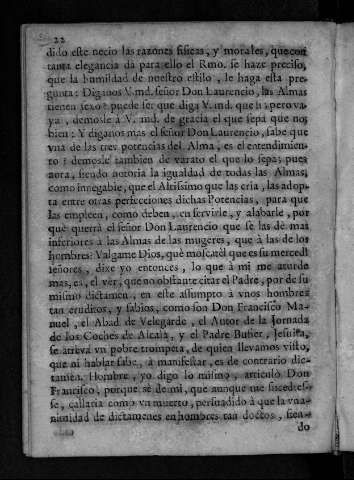 22
dido este necio las razones fisicas, y morales, que con
tanta elegancia dà para ello el Rmo. se haze preciso,
que la humildad de nuestro estilo, le haga esta pre-
gunta: Diganos V.md. señor Don Laurencio, las Almas
tienen sexo? puede ser que diga V.md. que si: pero va-
ya, demosle à V. md. de gracia el que sepa que no,
bien: Y diganos mas el señor Don Laurencio, sabe que
vna de las tres potencias del Alma, es el entendimien-
to? demosle tambien de varato el que lo sepa; pues
aora, siendo notoria la igualdad de todas las Almas,
como innegable, que el Altissimo que las cria, las adop-
ta entre otras perfecciones dichas Potencias, para que
las empleen, como deben, en servirle, y alabarle, por
què querrà el señor Don Laurencio que se las dè mas
inferiores à las Almas de las mugeres, que à las de los
hombres? Valgame Dios, què moscatèl que es su merced!
señores, dixe yo entonces, lo que à mi me aturde
mas, es, el vèr, que no obstante citar el Padre, por de su
mismo dictamen, en este assumpto à vnos hombres
tan eruditos, y sabios, como son Don Francisco Ma-
nuel, el Abad de Velegarde, el Autor de la Jornada
de los Coches de Alcalà, y el Padre Bufier, Jesuita,
se atreva vn pobre trompeta, de quien llevamos visto,
que ni hablar sabe, à manifestar, es de contrario dic-
tamen. Hombre, yo digo lo mismo, articulò Don
Francisco, porque sè de mi, que aunque me sucedies-
se, callaria como vn muerto, persuadido à que la vna-
nimidad de dictamenes en hombres tan doctos, sien-
do